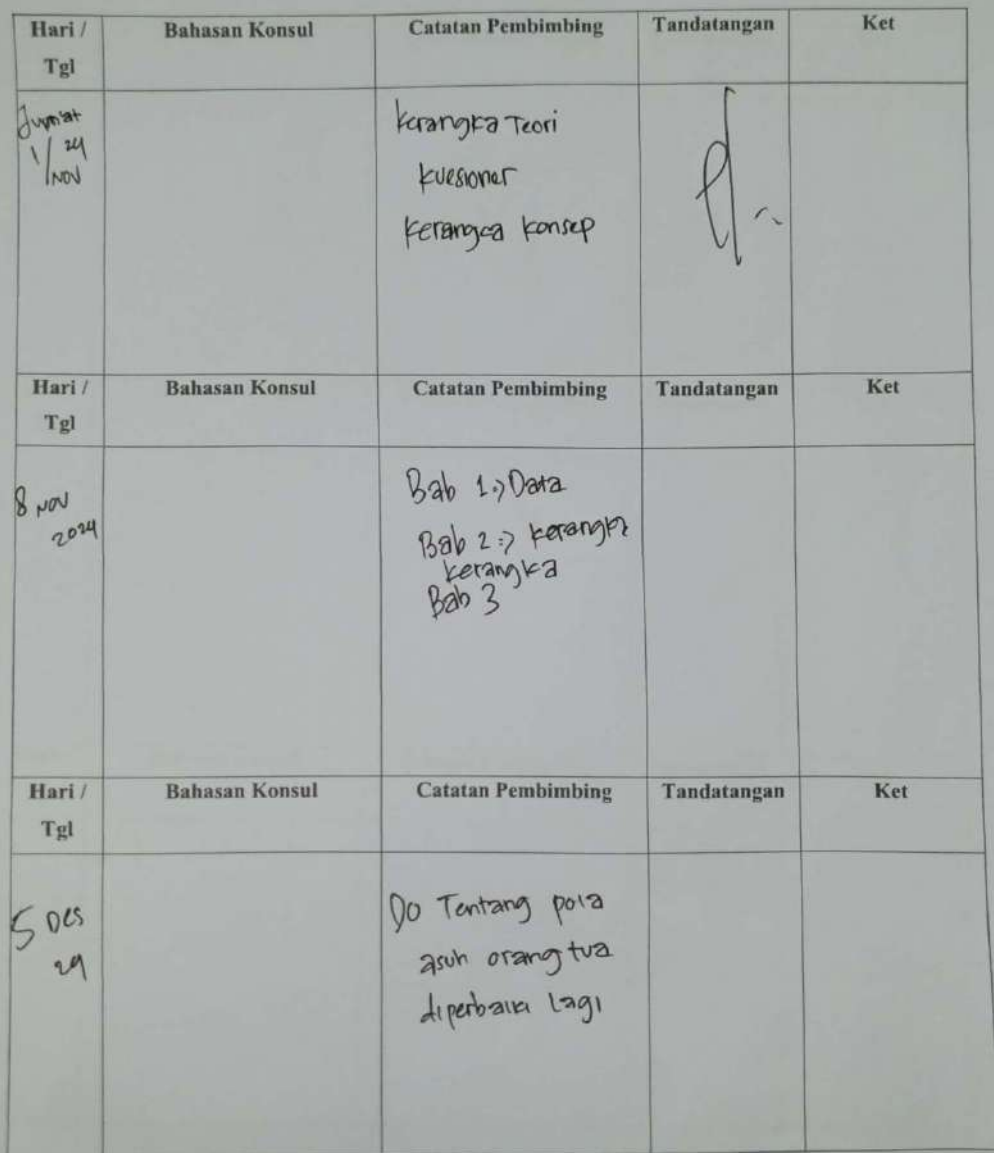 Hari / Bahasan Konsul Catatan Pembimbing Tandatangan Ket
Tgl
Jum'at kerangka Teori
1/ 24 kuesioner
NOV
kerangca konsep
Hari / Bahasan Konsul Catatan Pembimbing Tandatangan Ket
Tgl
8 NOV Bab 1 :) Data
2024 Bab 2 :) kerangka
kerangka
Bab 3
Hari / Bahasan Konsul Catatan Pembimbing Tandatangan Ket
Tgl
5 Des DO Tentang pola
24 asuh orang tua
diperbaiki lagi